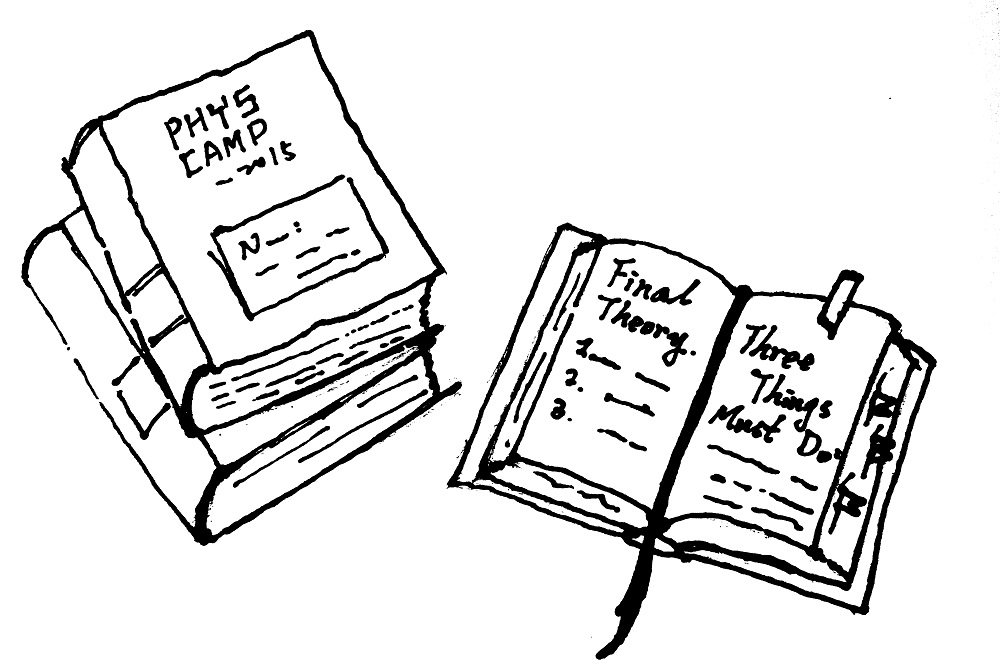 PHYS
CAMP
-2015
N—:
Final
Theory.
1.
2.
3.
Three
Things
Must Do: